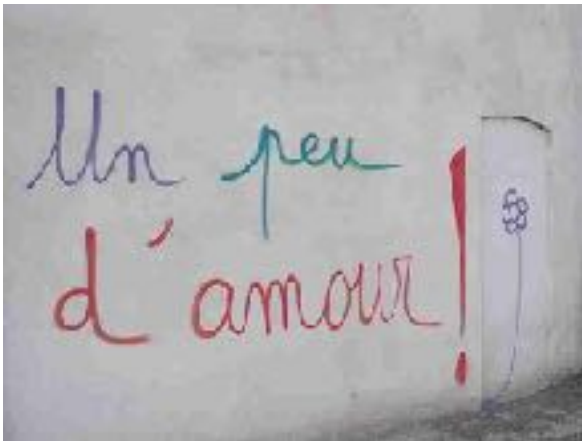 Un peu
d'amour!